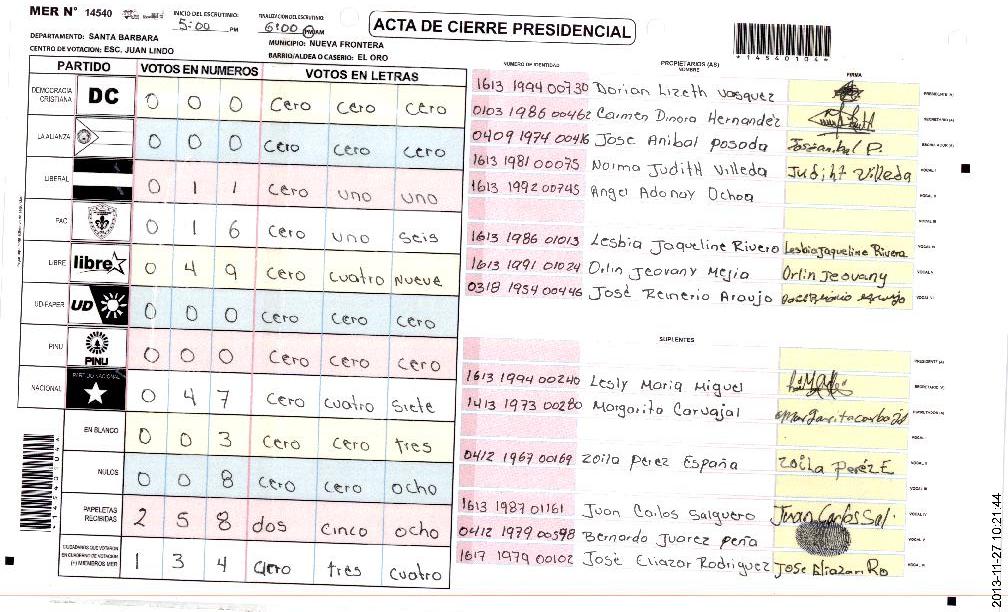 MER N° 14540
INICIO DEL ESCRUTINIO:
5:00 PM
FINALIZACION DEL ESCRUTINIO:
6:00 PM/AM
ACTA DE CIERRE PRESIDENCIAL
*14540104*
DEPARTAMENTO: SANTA BARBARA
MUNICIPIO: NUEVA FRONTERA
CENTRO DE VOTACION: ESC. JUAN LINDO
BARRIO/ALDEA O CASERIO: EL ORO
PARTIDO VOTOS EN NUMEROS VOTOS EN LETRAS
DEMOCRACIA CRISTIANA DC 0 0 0 Cero cero cero
LA ALIANZA 0 0 0 Cero cero cero
LIBERAL 0 1 1 Cero uno uno
PAC 0 1 6 Cero uno seis
LIBRE libre 0 4 9 Cero cuatro nueve
UD-FAPER UD 0 0 0 Cero cero cero
PINU PINU 0 0 0 Cero Cero cero
NACIONAL PARTIDO NACIONAL 0 4 7 Cero cuatro siete
EN BLANCO 0 0 3 Cero cero tres
NULOS 0 0 8 cero cero ocho
PAPELETAS RECIBIDAS 2 5 8 dos cinco ocho
CIUDADANOS QUE VOTARON EN CUADERNO DE VOTACION (+) MIEMBROS MER 1 3 4 tres cuatro
NUMERO DE IDENTIDAD PROPIETARIOS (AS) NOMBRE FIRMA
1613 1994 00730 Dorian Lizeth Vasquez PRESIDENTE (A)
0103 1986 00462 Carmen Dinora Hernandez SECRETARIO (A)
0409 1974 00416 Jose Anibal Posada Joseanibal P. ESCRUTADOR (A)
1613 1981 00075 Norma Judith Villeda Judiht Villeda VOCAL I
1613 1992 00745 Angel Adonay Ochoa VOCAL II
VOCAL III
1613 1986 01013 Lesbia Jaqueline Rivero Lesbia Jaqueline Rivera VOCAL IV
1613 1991 01024 Orlin Jeovany Mejia Orlin Jeovany VOCAL V
0318 1954 00446 José Reinerio Araujo VOCAL VI
SUPLENTES
PRESIDENTE (A)
1613 1994 00240 Lesly Maria Miguel SECRETARIO (A)
1413 1973 00280 Margarita Carvajal ESCRUTADOR (A)
VOCAL I
0412 1967 00169 Zoila Perez España Zoila Peréz E VOCAL II
VOCAL III
1613 1987 01161 Juan Carlos Salguero Juan Carlos Sal. VOCAL IV
0412 1979 00598 Bernardo Juarez peña VOCAL V
1617 1979 00102 José Eliazar Rodriguez Jose Eliazar Ro VOCAL VI
2013-11-27 10:21:44